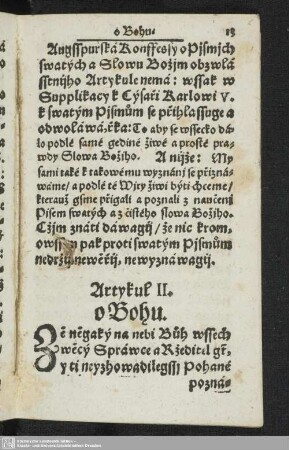 o Bohu. 13
Augsspurská Konffessy o Pjsmjch
swatých a Slowu Božjm obzwlá
sstnijho Artykule nemá: wssak w
Supplikacy k Cýsaři Karlowi V.
k swatým Pjsmům se přihlassuge a
odwoláwá, řka: To aby se wssecko dá-
lo podlé samé gediné žiwé a prosté pra-
wdy Slowa Božího. A nijže: My
sami také k takowému wyznánj se přizná-
wáme / a podlé té Wjry žiwi býti chceme /
kterauž gsme přigali a poznali z naučenj
Pjsem swatých a z čistého slowa Božího.
Cžjm znáti dáwagij / že nic krom,
owssem pak proti swatým Pjsmům
nedržij, newěřij, newyznáwagij.
Artykul II.
o Bohu.
Zě něgaký na nebi Bůh wssech
wěcý Spráwce a Ržeditel gest,
y ti neyzhowadilegssj Pohané
pozná-